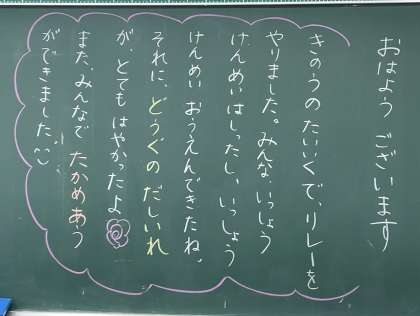 おはよう ございます
きのうの たいいくで、リレーを
やりました。みんな、いっしょう
けんめいはしったし、いっしょう
けんめい おうえんできたね。
それに、どうぐの だしいれ
が、とても はやかったよ
また、みんなで たかめあう
ができました。